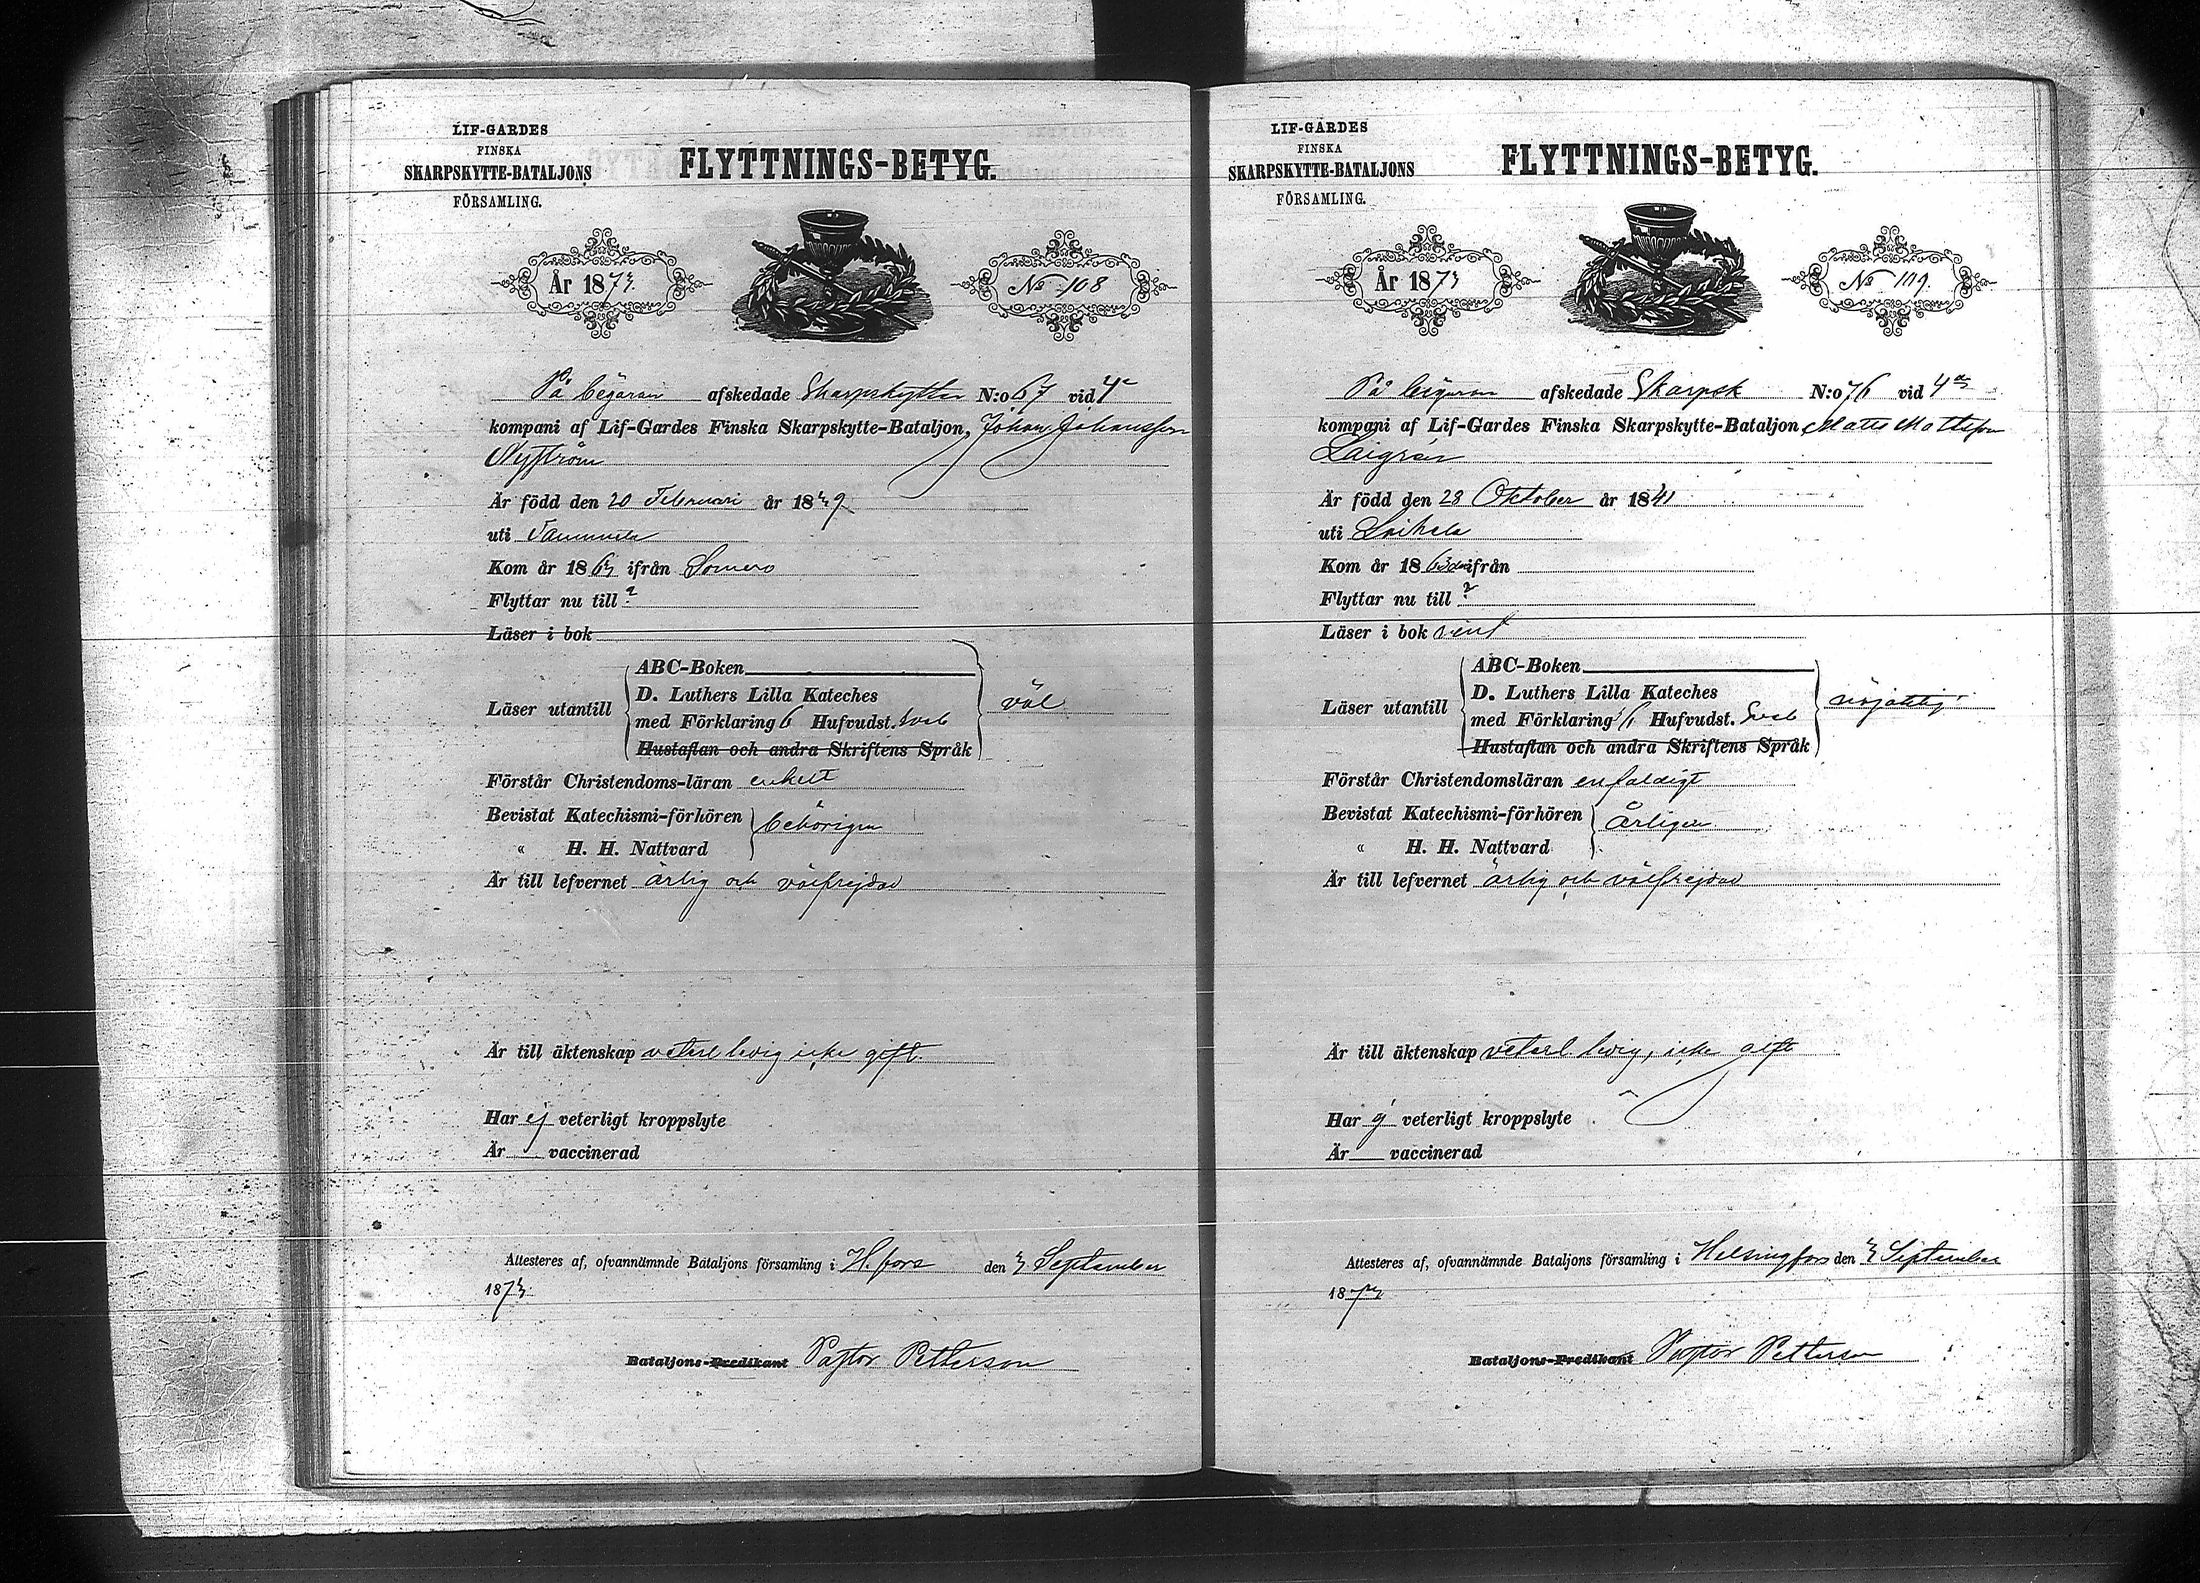 LIF-GARDES
FINSKA
SKARPSKYTTE-BATALJONS
FÖRSAMLING.
FLYTTNINGS-BETYG.
År 1873.
No 108
På begäran afskedade Skarpskytten N:o 67 vid 4
kompani af Lif-Gardes Finska Skarpskytte-Bataljon, Johan Johansson
Nyström
Är född den 20 Februari år 1839
uti Tammela
Kom år 1863 ifrån Somero
Flyttar nu till ?
Läser i bok
Läser utantill
ABC-Boken
D. Luthers Lilla Kateches
med Förklaring 6 Hufvudst. Sveb
Hustaflan och andra Skriftens Språk
väl
Förstår Christendoms-läran enkelt
Bevistat Katechismi-förhören
" H. H. Nattvard
behörigen
Är till lefvernet ärlig och välfrejdad
Är till äktenskap veterl ledig icke gift
Har ej veterligt kroppslyte
Är vaccinerad
Attesteres af, ofvannämnde Bataljons församling i H.fors den 3 September
1873
Bataljons-Predikant Pastor Petterson
LIF-GARDES
FINSKA
SKARPSKYTTE-BATALJONS
FÖRSAMLING.
FLYTTNINGS-BETYG.
År 1873
No 109.
På begäran afskedade Skarpsk N:o 76 vid 4de
kompani af Lif-Gardes Finska Skarpskytte-Bataljon, Matts Mattsson
Är född den 28 Oktober år 1841
uti Laihela
Kom år 1863 ifrån
Flyttar nu till ?
Läser i bok rent
Läser utantill
ABC-Boken
D. Luthers Lilla Kateches
med Förklaring Hufvudst. Sveb
Hustaflan och andra Skriftens Språk
nöjaktig
Förstår Christendomsläran enfaldigt
Bevistat Katechismi-förhören
" H. H. Nattvard
Årligen
Är till lefvernet ärlig och välfrejdad
Är till äktenskap veterl. ledig, icke gift
Har ej veterligt kroppslyte
Är vaccinerad
Attesteres af, ofvannämnde Bataljons församling i Helsingfors den 3 September
1873
Bataljons-Predikant Pastor Petterson